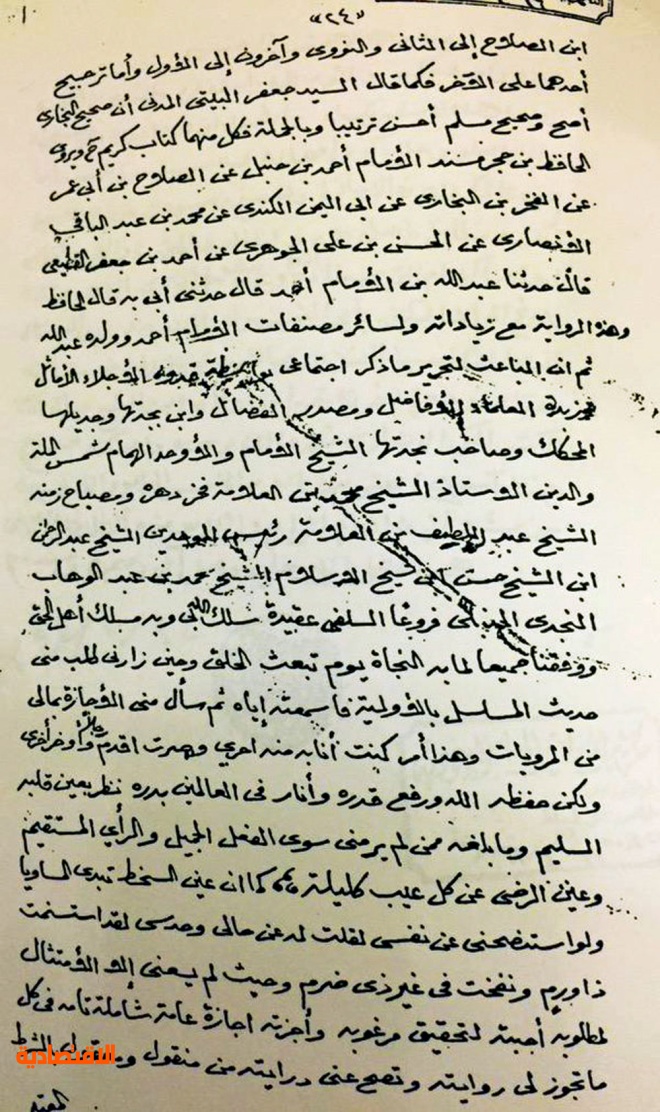 «٢٤»
ابن الصلاح إلى الثاني والنووي وآخرون إلى الأول وأما ترجيح
أحدهما على الآخر فكما قال السيد جعفر البيتي المدني أن صحيح البخاري
أصح وصحيح مسلم أحسن ترتيبا وبالجملة فكل منهما كتاب كريم ح ويروي
الحافظ بن حجر مسند الإمام أحمد بن حنبل عن الصلاح بن أبي عمر
عن الفخر بن البخاري عن ابي اليمن الكندي عن محمد بن عبد الباقي
الأنصاري عن الحسن بن علي الجوهري عن أحمد بن جعفر القطيعي
قال حدثنا عبد الله بن الإمام أحمد قال حدثني أبي به قال الحافظ
وهذه الرواية مع زياداته ولسائر مصنفات الإمام أحمد وولده عبد الله
ثم ان الباعث لتحرير ما ذكر اجتماعي قدوة الأجلاء الأماثل
وزبدة العلماء الأفاضل ومصدر الفضائل وابن بجدتها وجذيلها
المحكك وصاحب نجدتها الشيخ الإمام والأوحد الهمام شمس الملة
والدين الأستاذ الشيخ محمد بن العلامة فخر دهره ومصباح زمنه
الشيخ عبد اللطيف بن العلامة رئيس الموحدين الشيخ عبد الرحمن
ابن الشيخ حسن ابن شيخ الإسلام الشيخ محمد بن عبد الوهاب
النجدي الحنبلي فروعا السلفي عقيدة سلك الله بي وبه مسلك أهل الحق
ووفقنا جميعا لما به النجاة يوم تبعث الخلق وحين زارني طلب مني
حديث المسلسل بالأولية فاسمعته إياه ثم سأل مني الإجازة بمالي
من المرويات وهذا أمر كنت أنا به منه احرى وصرت اقدم رجلا وأوخر أخرى
ولكن حفظه الله ورفع قدره وأنار في العالمين بدره نظر بعين قلبه
السليم وما بلغه ممن لم ير مني سوى الفعل الجميل والرأي المستقيم
وعين الرضى عن كل عيب كليلة كما ان عين السخط تبدي المساويا
ولو استنصحني عن نفسي لقلت له عن حالي وحدسي لقد استسمنت
ذا ورم ونفخت في غير ذي ضرم وحيث لم يسعني إلا الامتثال
لمطلوبه أجبته لتحقيق مرغوبه وأجزته اجازة عامة شاملة تامة في كل
ما تجوز لي روايته وتصح عني درايته من منقول ومعقول بالشرط
المعتبر
الاقتصادية